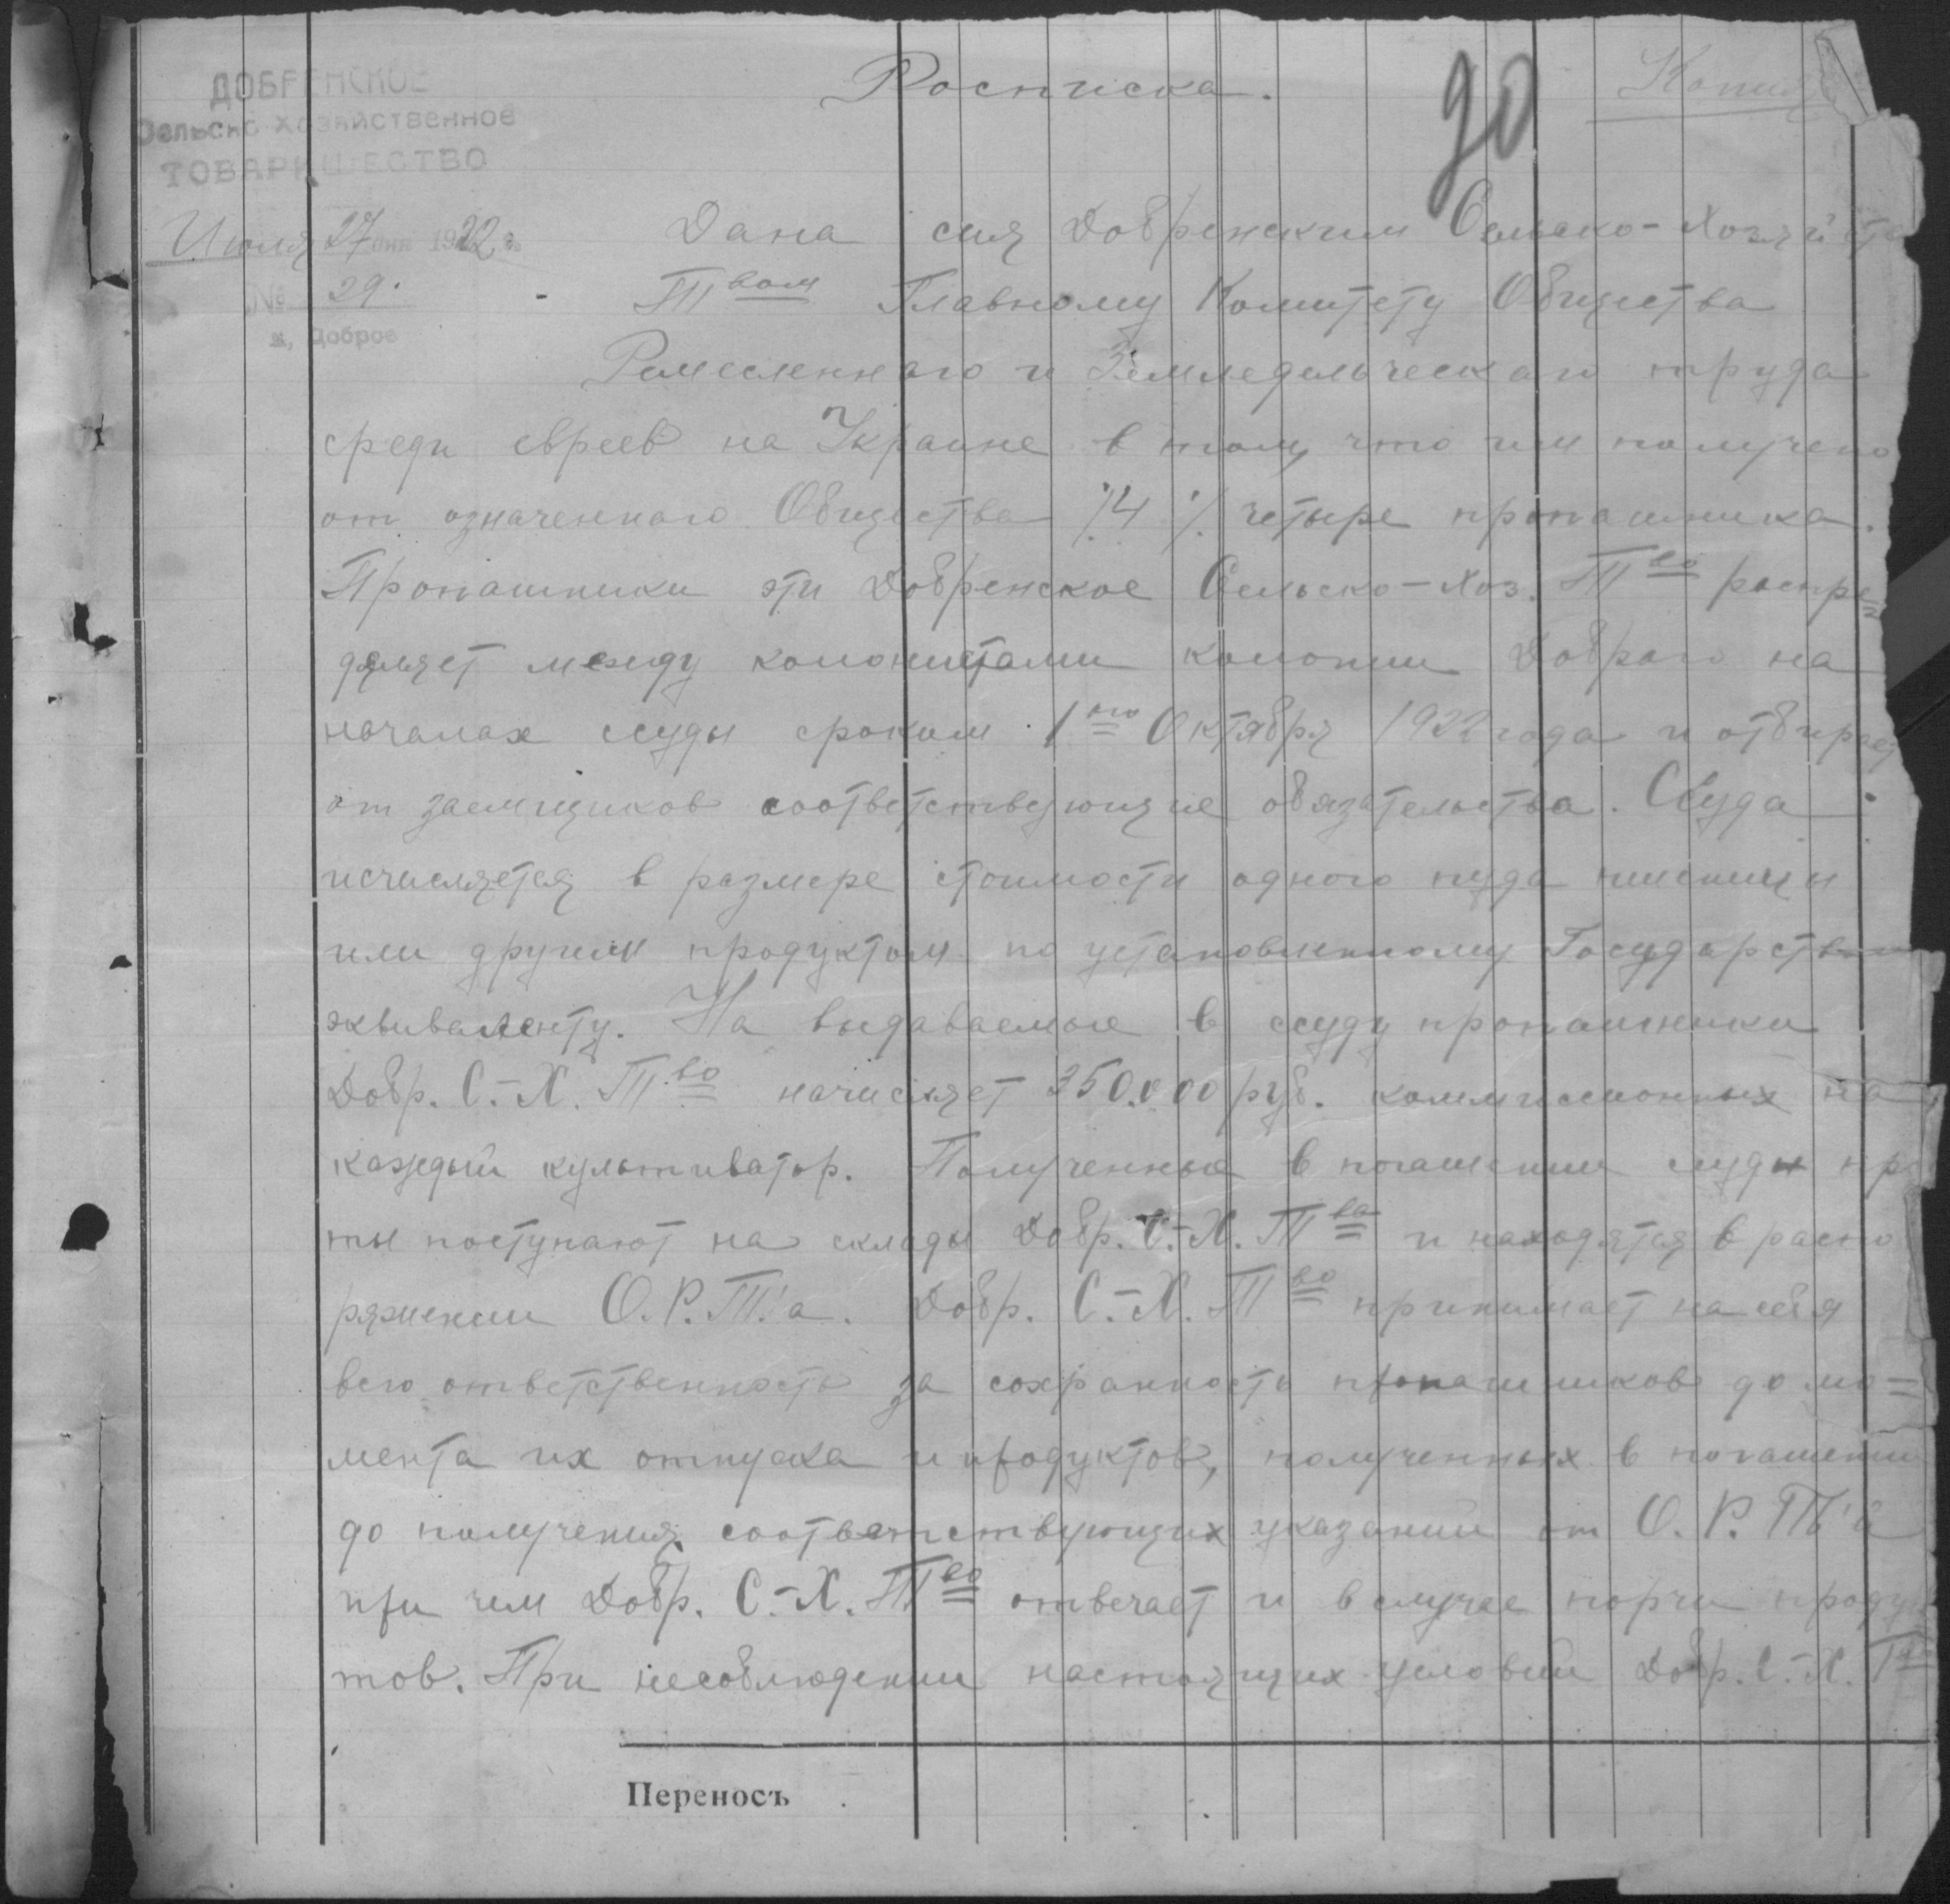 Росписка.
90
Копия
ДОБРЕНСКОЕ
Сельско Хозяйственное
ТОВАРИЩЕСТВО
Июля 27 дня 1922 г.
№ 29.
к. Доброе
Дана сия Добренским Сельско-Хозяйств
Твом Главному Комитету Общества
Ремесленного и Земледельческаго труда
среди евреев на Украине в том, что им получено
от означеннаго Общества /4/ четыре пропашника.
Пропашники эти Добренское Сельско-Хоз. Тво распре=
деляет между колонистами колонии Добраго на
началах ссуды сроком 1го Октября 1922 года и отбирает
от заемщиков соответствующие обязательства. Ссуда
исчисляется в размере стоимости одного пуда пшеницы
или другим продуктом по установленному Государств
эквиваленту. На выдаваемые в ссуду пропашники
Добр. С.-Х. Тво начисляет 350.000 руб. коммиссионных на
каждый культиватор. Полученные в погашении ссуды пр
ты поступают на склады Добр. С.-Х. Тва и находятся в распо
ряжении О.Р.Т.'а. Добр. С.-Х. Тво принимает на себя
всю ответственность за сохранность пропашников до мо=
мента их отпуска и продуктов, полученных в погашении
до получения соответствующих указаний от О.Р.Т.'а
при чем Добр. С.-Х. Тво отвечает и в случае порчи проду
тов. При несоблюдении настоящих условий Добр. С.-Х. Тво
Переносъ